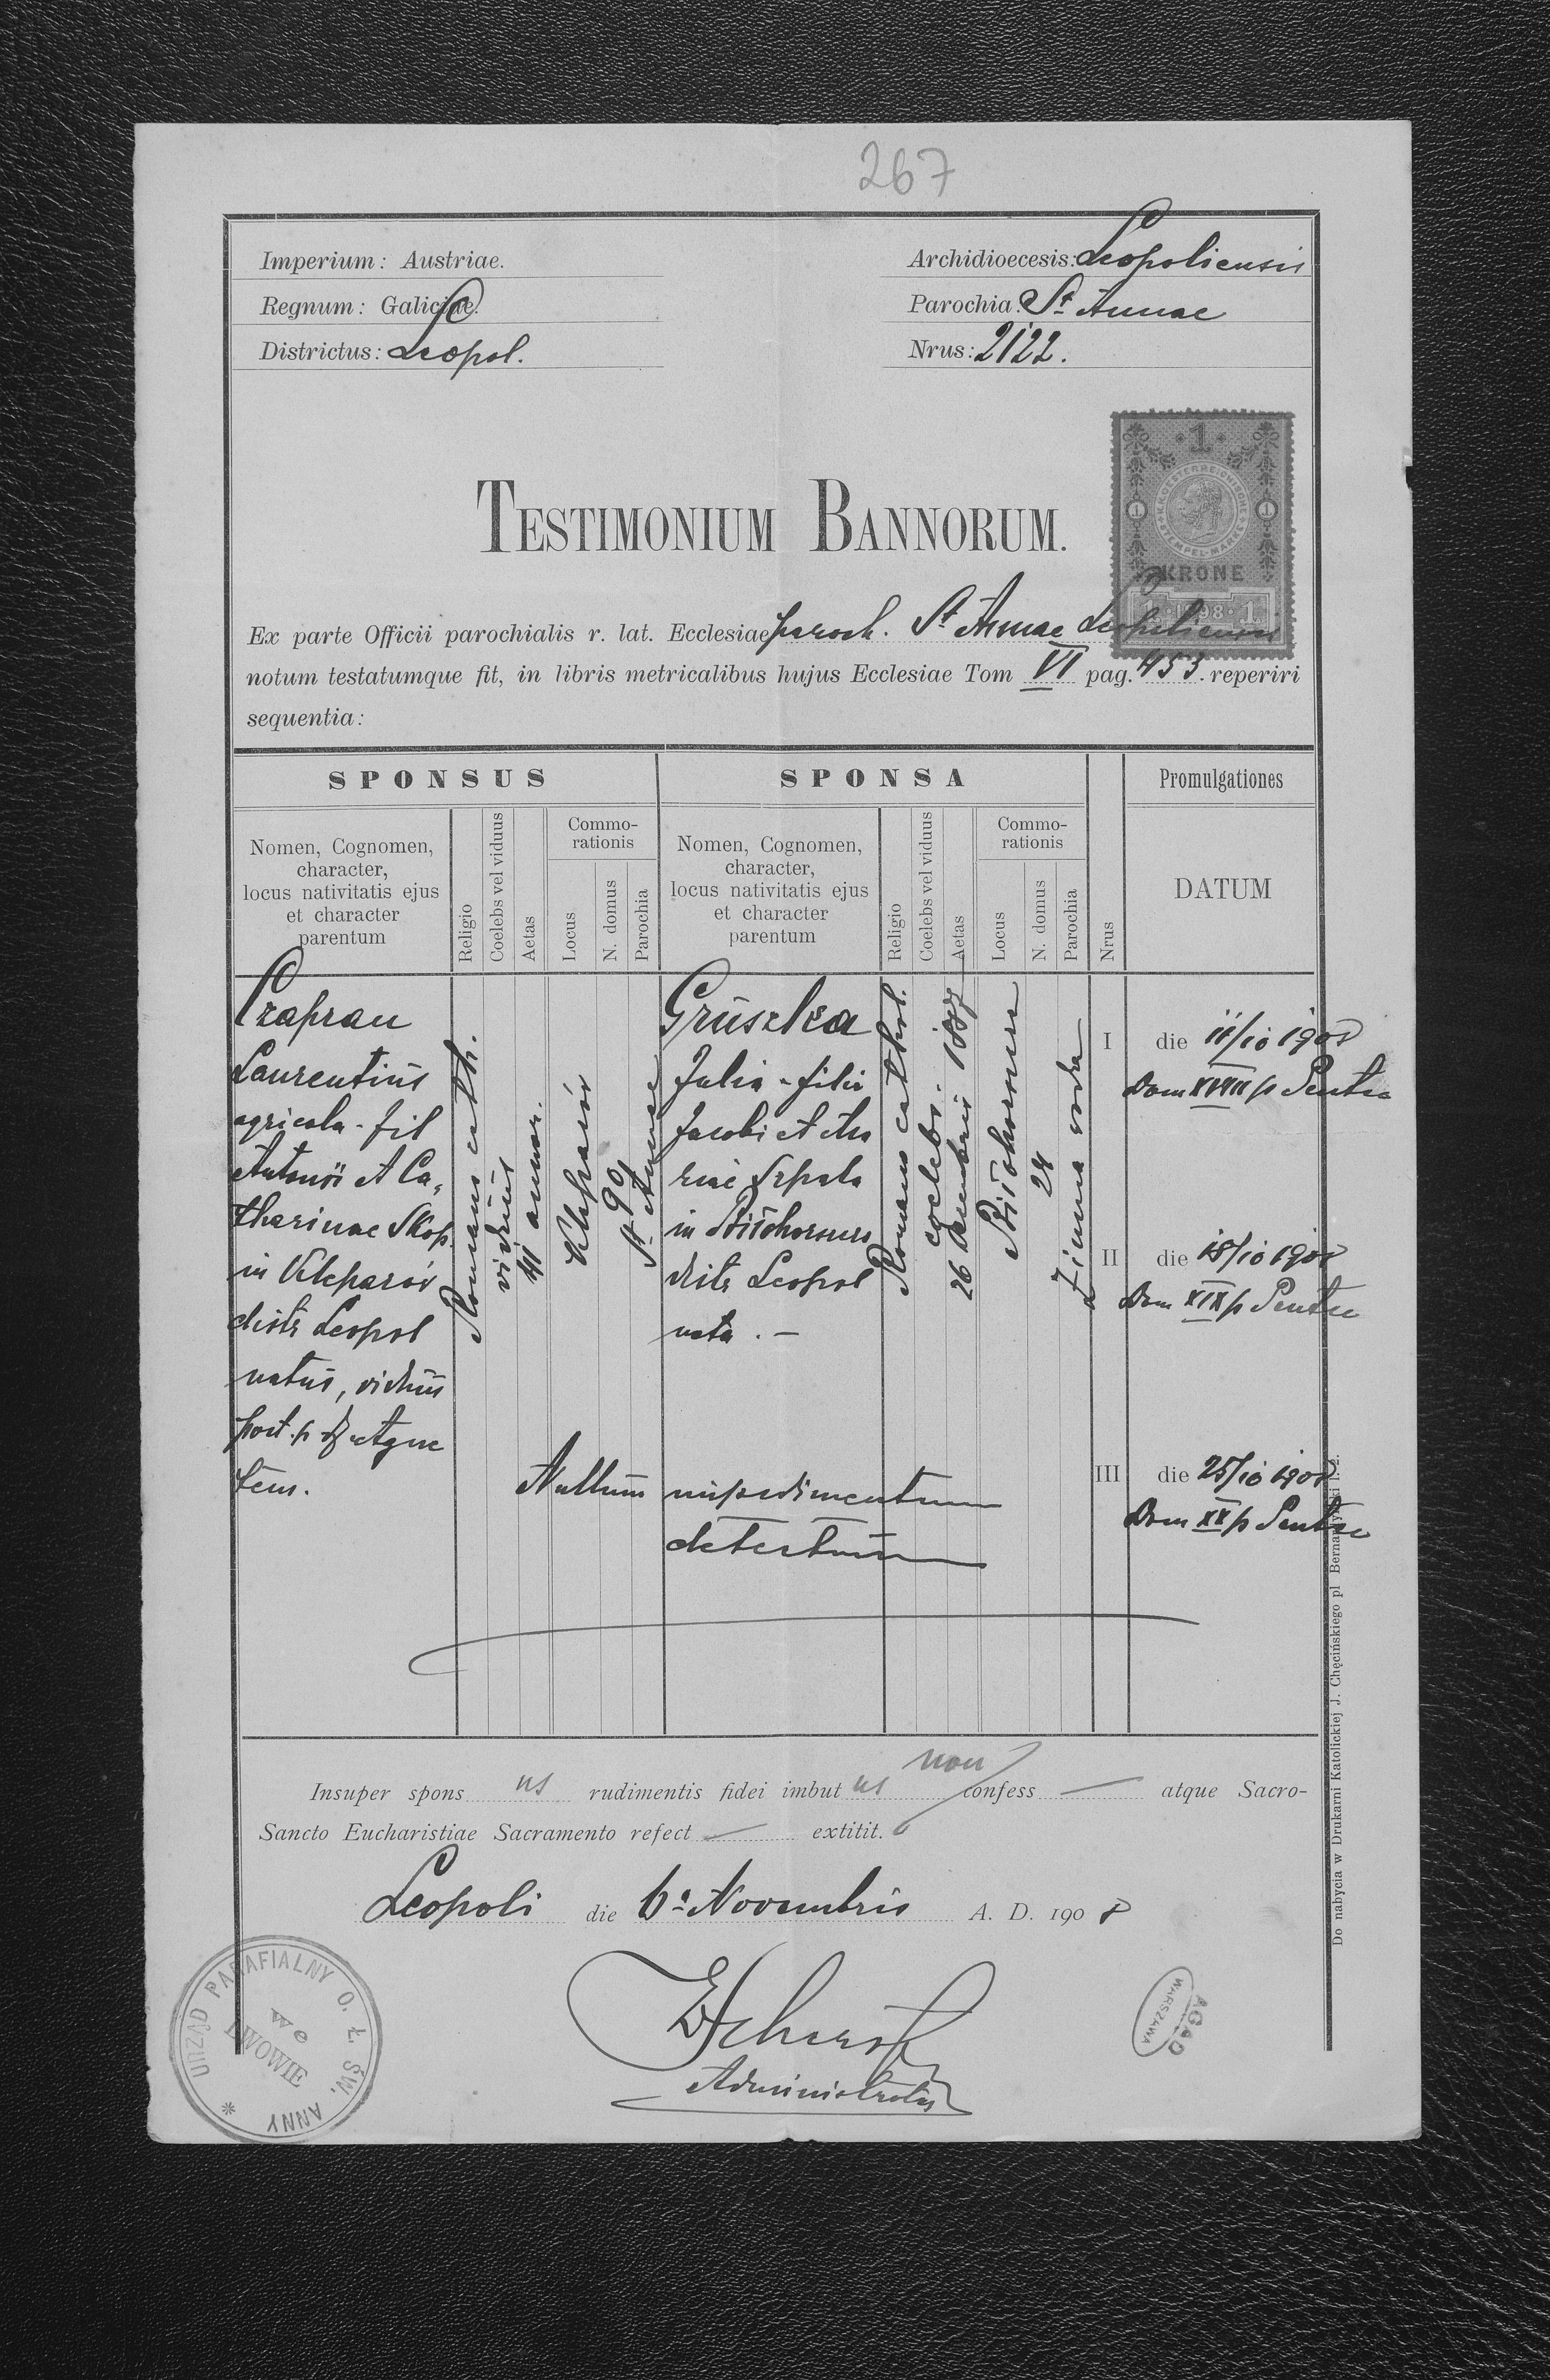 267
Imperium: Austriae.
Regnum: Galiciae.
Districtus: Leopol.
Archidioecesis: Leopoliensis
Parochia: St Annae
Nrus: 2122.
1
KRONE
1 1898 1
TESTIMONIUM BANNORUM.
Ex parte Officii parochialis r. lat. Ecclesiae paroch. St Annae Leopoliensis
notum testatumque fit, in libris metricalibus hujus Ecclesiae Tom VI pag. 453. reperiri
sequentia:
SPONSUS
SPONSA
Promulgationes
Nomen, Cognomen,
character,
locus nativitatis ejus
et character
parentum
Religio
Coelebs vel viduus
Aetas
Commo-
rationis
Locus
N. domus
Parochia
Nomen, Cognomen,
character,
locus nativitatis ejus
et character
parentum
Religio
Coelebs vel viduus
Aetas
Commo-
rationis
Locus
N. domus
Parochia
Nrus
DATUM
Czapran
Laurentius
agricola - fil
Antonii et Ca-
tharinae Skop.
in Kleparów
distr Leopol
natus, viduus
post. p. Agne
tem.
Romano cath.
viduus
41 annor.
Kleparów
90
St Annae
Gruszka
Julia - filia
Jacobi et Ma
riae Szpala
in
distr Leopol
nata . —
Romano cathol.
coelebs.
26 Decembris 1887
24
Zimna woda
I die 11/10 1908
Dom XVIII p Pentec
II die 18/10 1908
Dom XIX p Pentec
III die 25/10 1908
Dom XX p Pentec
Nullum impedimentum
detectum
Insuper spons us rudimentis fidei imbut us non confess — atque Sacro-
Sancto Eucharistiae Sacramento refect — extitit.
Leopoli die 6a Novembris A. D. 1908
Administrator
URZĄD PARAFIALNY O. Ł. ŚW. ANNY
we
LWOWIE
AGAD
WARSZAWA
Do nabycia w Drukarni Katolickiej J. Chęcińskiego pl Bernardyński l. 2.